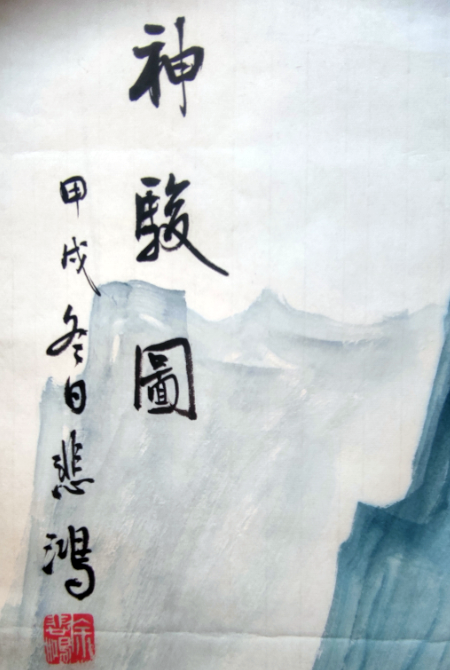 神駿圖
甲戌冬日悲鴻